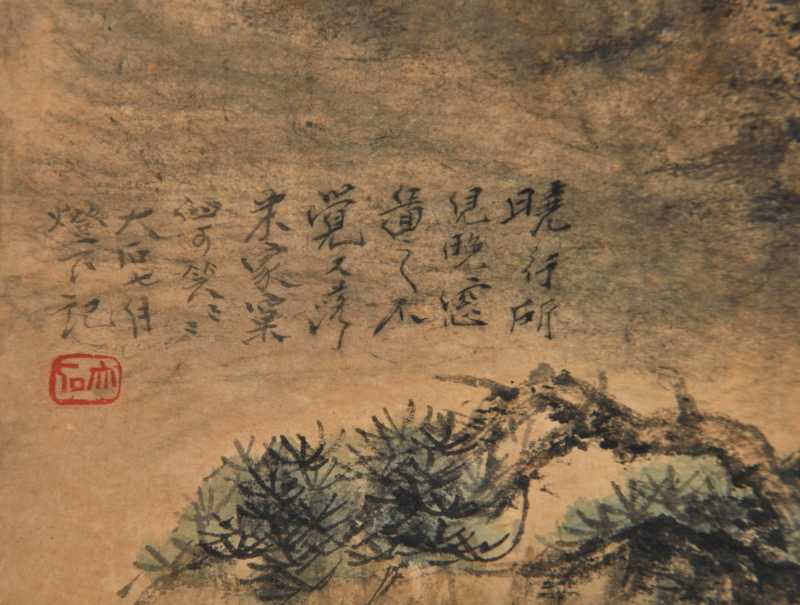 曉行所
見晚窓
啚之不
覺又落
米家窠
臼可笑〻
大石七
燈下記
亦石